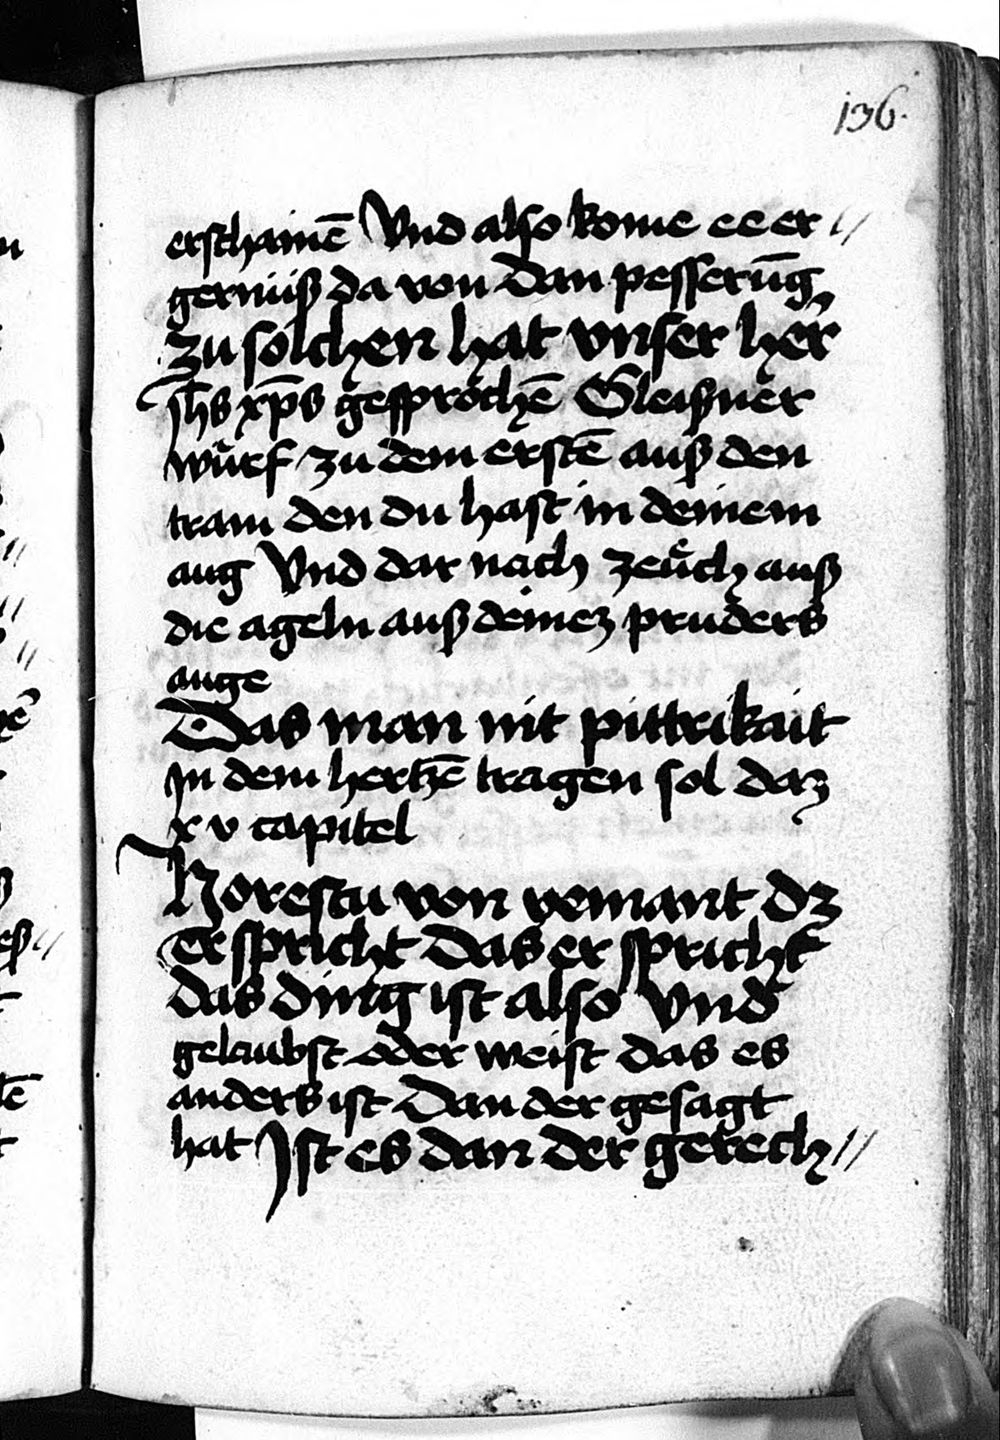 136.
erschainē Vnd also kome ee er //
gernüiß da von dan pesserūg
zu solchen hat vnser her
jhs xp̄s gesprochē Gleißner
würf zu dem erstē auß den
tram den du hast in deinem
aug Vnd dar nach zeüch auß
die ageln auß deinez pruders
auge
Das man nit pittrikait
In dem hertzē tragen sol daz
xv capitel
Horestu von yemant dz
er spricht das er spricht
das ding ist also Vnd
gelaubst oder weist das es
anders ist Dan der gesagt
hat Ist es dan der gerech //